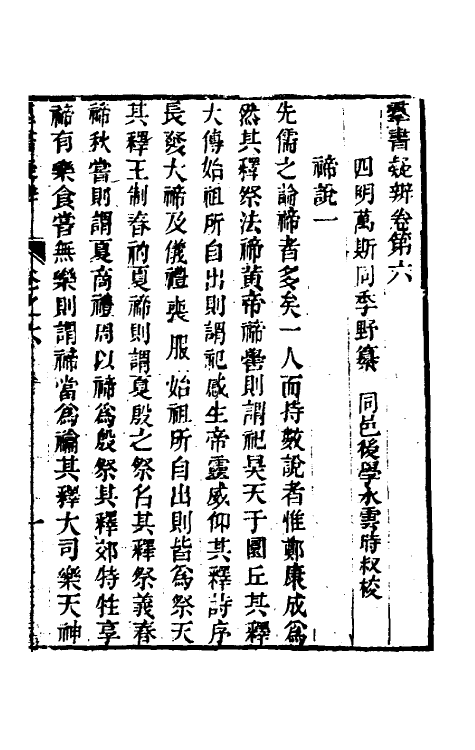 羣書疑辨卷第六
四明萬斯同季野纂　同邑後學水雲時叔校
禘說一
先儒之論禘者多矣一人而持數說者惟鄭康成爲
然其釋祭法禘黃帝禘嚳則謂祀昊天于圜丘其釋
大傳始祖所自出則謂祀感生帝靈威仰其釋詩序
長發大禘及儀禮喪服始祖所自出則皆爲祭天
其釋王制春礿夏禘則謂夏殷之祭名其釋祭義春
禘秋嘗則謂夏商禮周以禘爲殷祭其釋郊特牲享
禘有樂食嘗無樂則謂禘當爲禴其釋大司樂天神